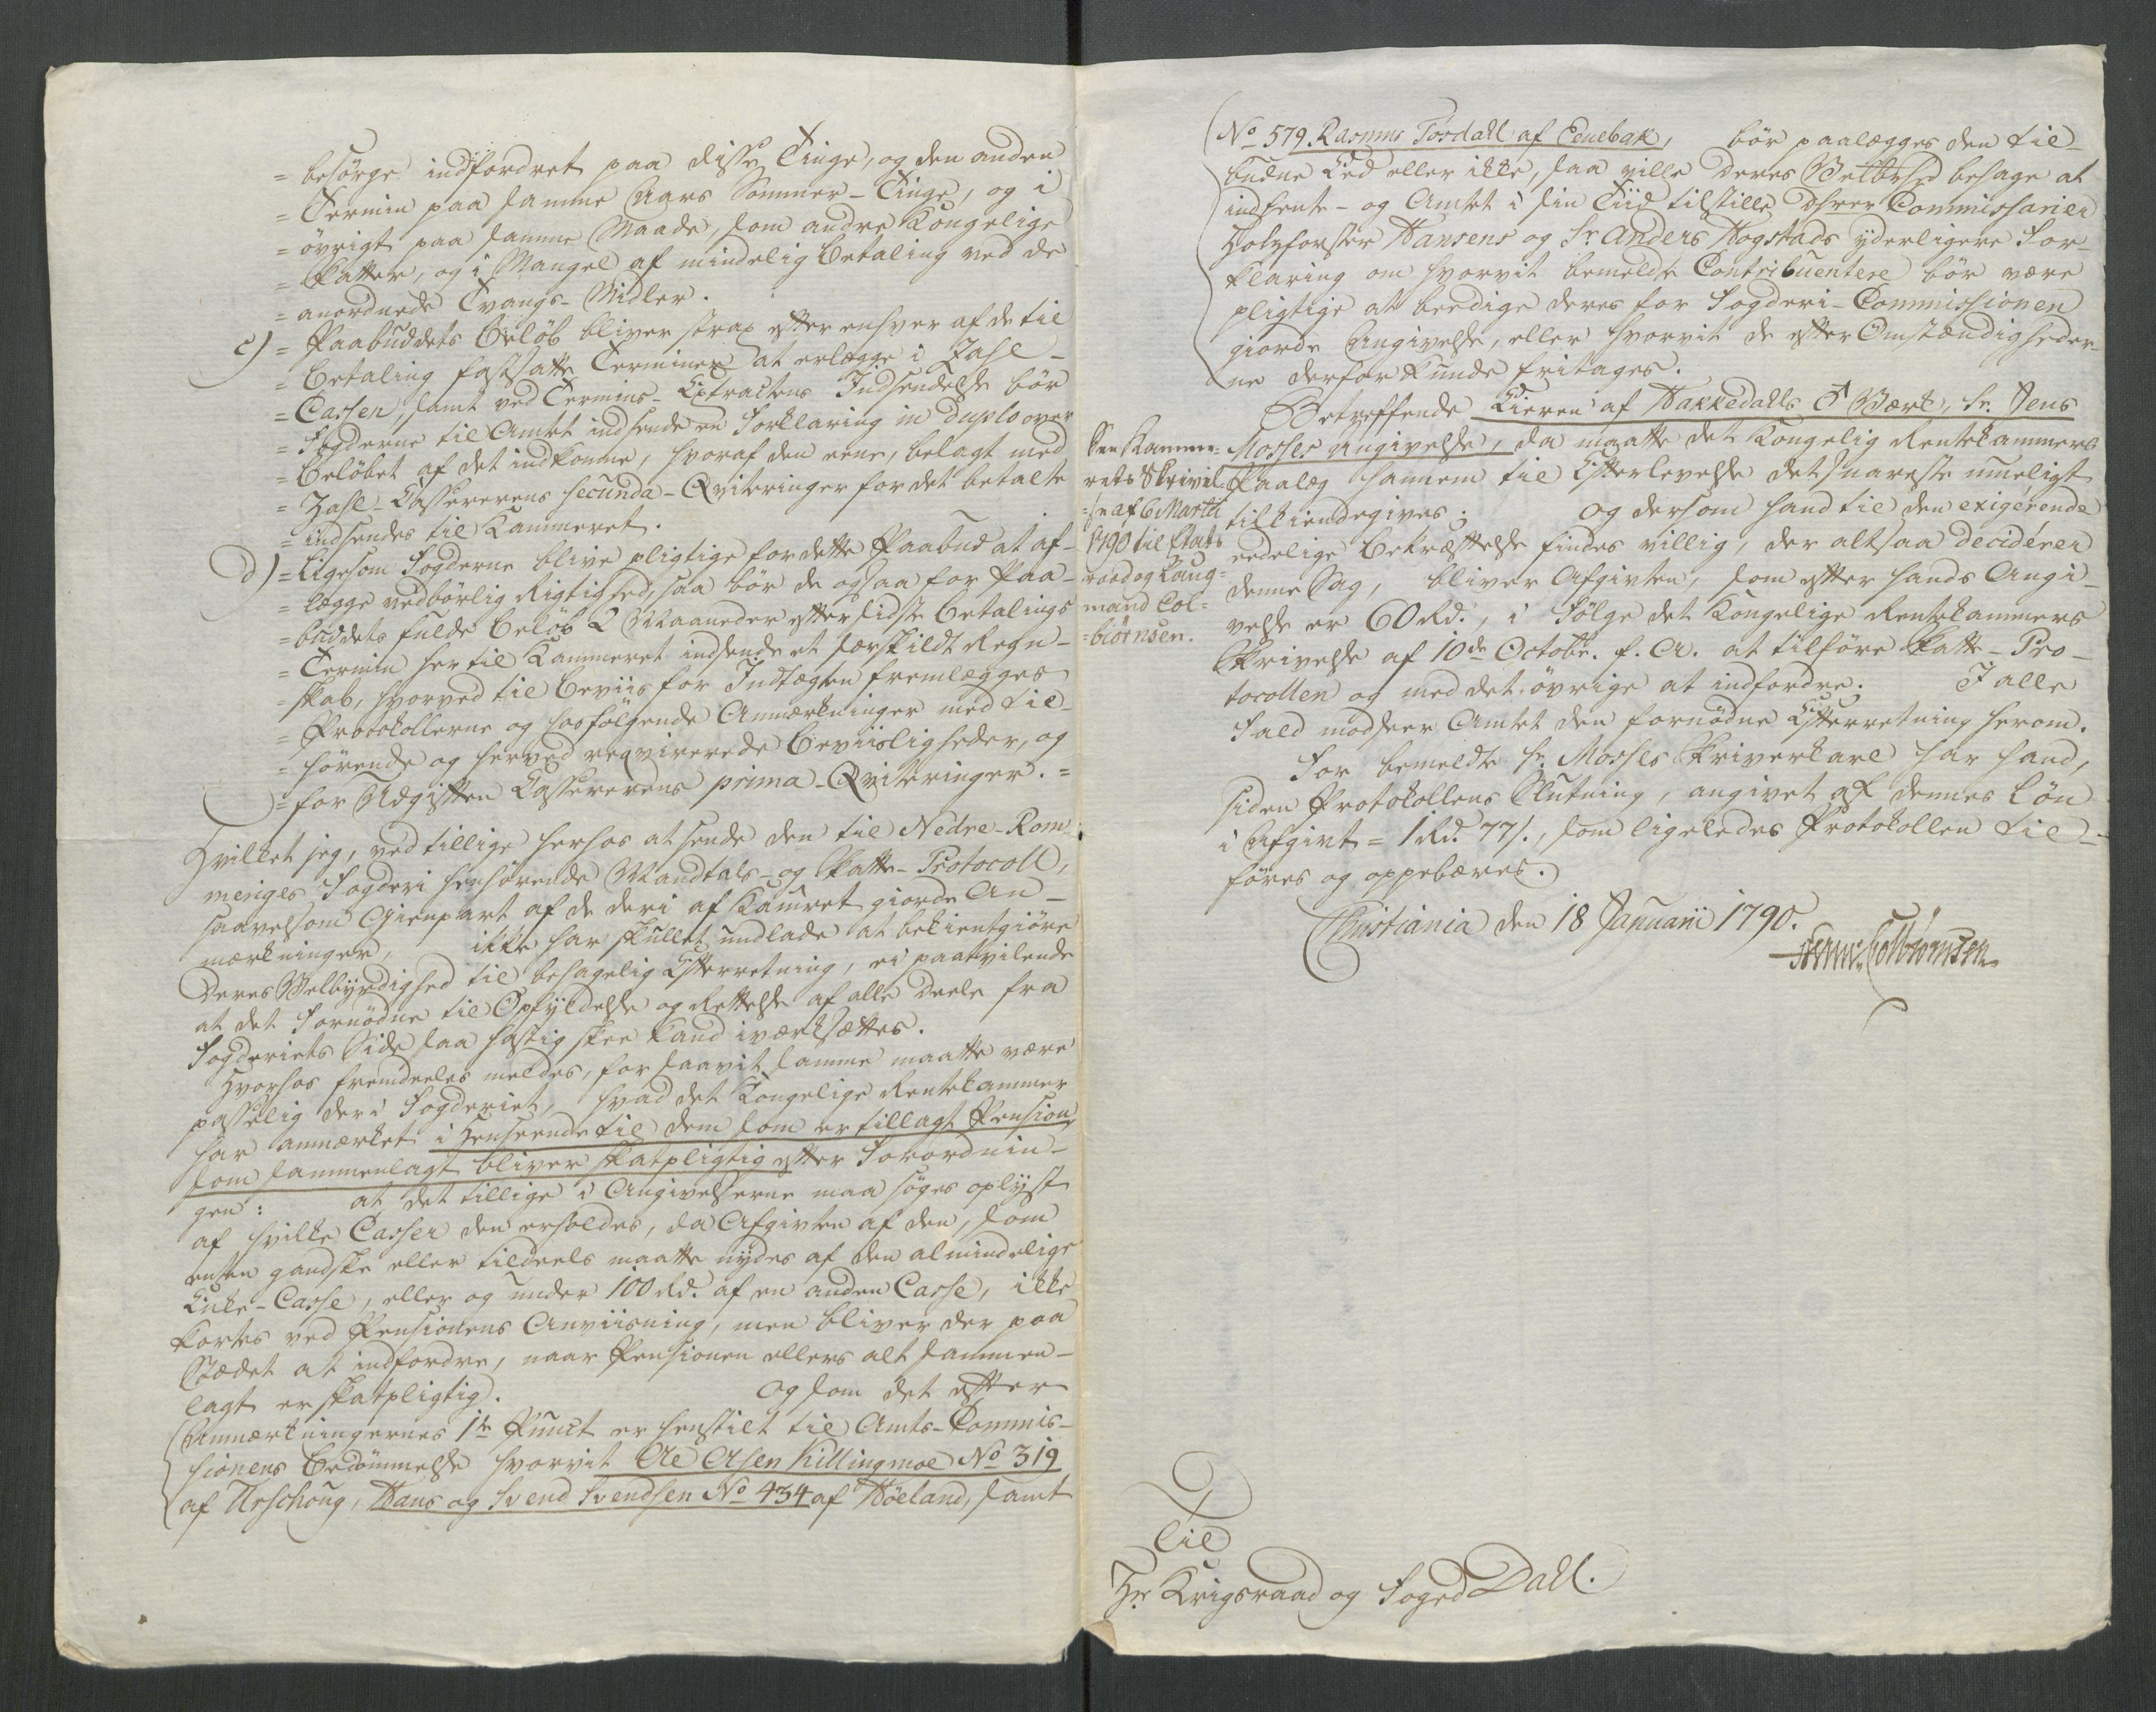 = besörge indfordret paa disse Tinge, og den anden
= Termin paa samme Aars Sommer-Tinge, og i
= övrigt paa samme Maade, som andre Kongelige
= Skatter, og i Mangel af mindelig Betaling ved de
= anordnede Tvangs-Midler.
c) = Paabuddets Belöb bliver strax efter enhver af de til
= Betaling fastsatte Terminer at erlægge i Zahl-
= Cassen, samt ved Termins-Extractens Indsendelse bör
= Fogderne til Amtet indsende en Forklaring in duplo over
= Belöbet af det indkomne, hvoraf den eene, belagt med
= Zahl-Cassererens secunda-Qviteringer for det betalte
= indsendes til Kammeret.
d) = Ligesom Fogderne blive pligtige for dette Paabud at af-
= lægge vedbörlig Rigtighed, saa bör de ogsaa for Paa-
= buddets fulde Belöb 2 Maaneder efter sidste Betalings
= Termin her til Kammeret indsende et særskildt Regn-
= skab, hvorved til Beviis for Indtægten fremlægges
= Protokollerne og hosfölgende Anmærkninger med til-
= hörende og herved reqvirerede Beviisligheder, og
= for Udgiften Cassererens prima-Qviteringer. =
Hvilket jeg, ved tillige herhos at sende den til Nedre-Rom-
meriges Fogderi henhörende Mandtals- og Skatte-Protocoll,
saavelsom Gienpart af de deri af Kamret giorde An-
mærkninger, ikke har skullet undlade at bekientgiöre
Deres Velbyrdighed til behagelig Efterretning, ei paatvilende
at det Fornödne til Opfyldelse og Rettelse af alle Deele fra
Fogderiets Side saa hastig skee kand iværksættes.
Hvorhos fremdeeles meldes, for saavit samme maatte være
passelig der i Fogderiet, hvad det Kongelige Rentekammer
har anmærket i Henseende til dem som er tillagt Pension
som sammenlagt bliver skatpligtig efter Forordnin-
gen: at det tillige i Angivelserne maa söges oplyst
af hvilke Casser den erholdes, da Afgivten af den, som
enten gandske eller tildeels maatte nydes af den almindelige
Enke-Casse, eller og under 100 Rd. af en anden Casse, ikke
kortes ved Pensionens Anviisning, men bliver der paa
Stædet at indfordre, naar Pensionen ellers alt sammen-
lagt er skatpligtig. Og som det efter
Anmærkningernes 1te Punct er henstilt til Amts-Commis-
sionens Bedömmelse hvorvit Ole Olsen Killingmoe No 319
af Urschoug, Hans og Svend Svendsen No 434 af Höeland, samt
No 579 Rasmus Tosdahl af Enebak, bör paalægges den til-
budne Eed eller ikke, saa ville Deres Velbhed behage at
indhente- og Amtet i sin Tiid tilstille dhrer Commissarier
Holzforster Hansens og Sr. Anders Hogstads yderligere For-
klaring om hvorvit bemeldte Contribuentere bör være
pligtige at beedige deres for Fogderi-Commissionen
giorde Angivelse, eller hvorvit de efter Omstændigheder-
ne derfor kunde fritages.
Betreffende Eieren af Hakkedahls ♂ Værk, Hr. Jens
Mosses Angivelse, da maatte det Kongelig Rentekammers
Paalæg hannem til Efterlevelse det snareste mueligt
tilkiendegives; og dersom hand til den exigérende
eedelige Bekræftelse findes villig, der altsaa decidérer
denne Sag, bliver Afgivten, som efter hands Angi-
velse er 60 Rd., i Fölge det Kongelige Rentekammers
Skrivelse af 10de Octobr. f. A. at tilföre Skatte-Pro-
tocollen og med det övrige at indfordre; I alle
Fald modseer Amtet den fornödne Efterretning herom.
See Kamme-
rets Skrivel
=se af 6 Martii
1790 til Etats
raad og Laug=
mand Col=
=biörnsen.
For bemeldte Hr. Mosses Skriverkarl har hand,
siden Protokollens Slutning, angivet af dennes Lön
i Afgivt = 1 Rd. 77 s., som ligeledes Protokollen til-
föres og oppebæres.
Christiania den 18 Januarii 1790.
Colbiörnsen
Til
Hr. Krigsraad og Foged Dahl.